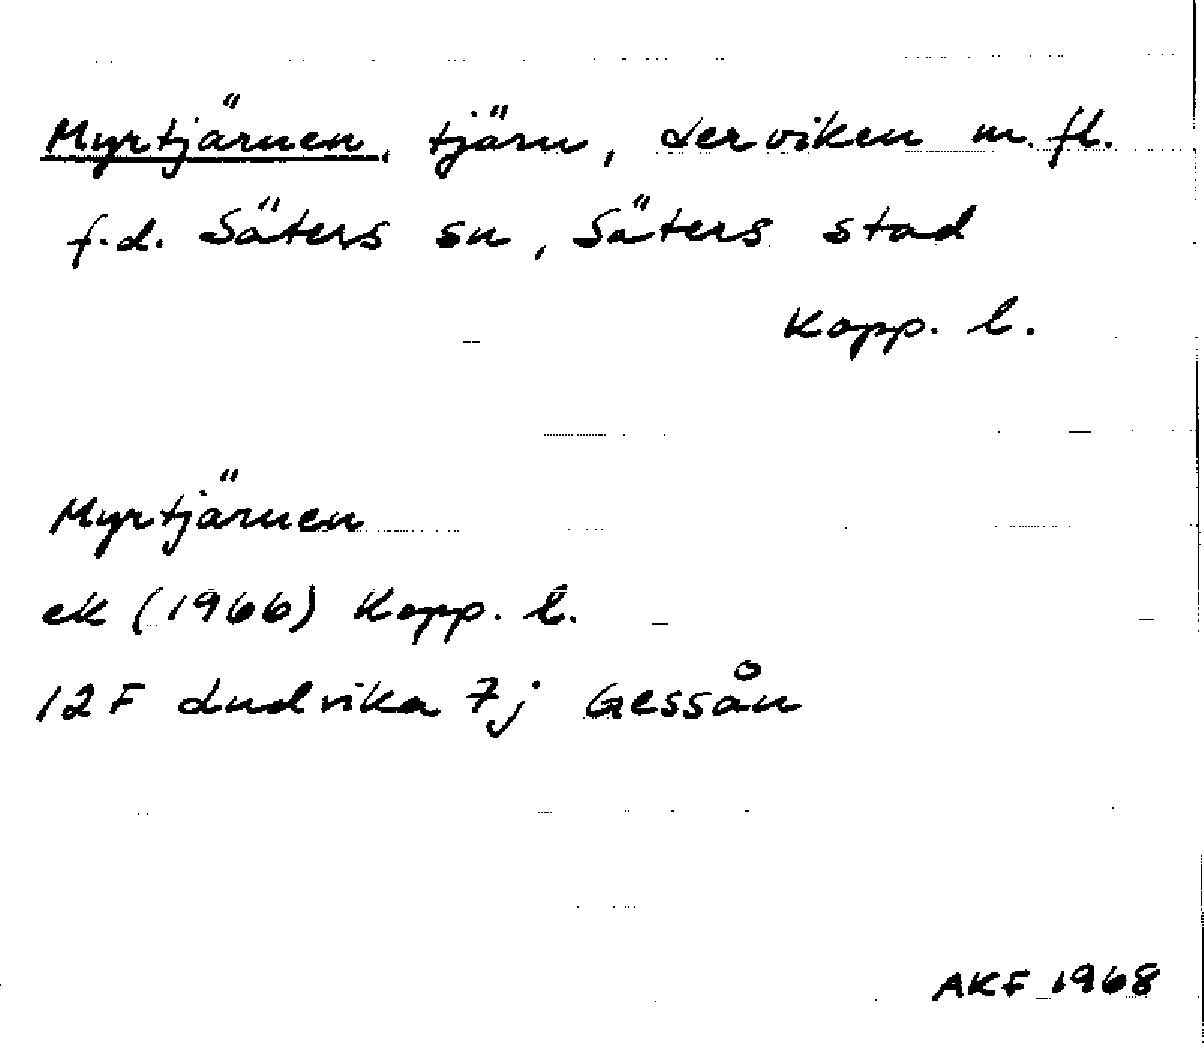 Myrtjärnen, tjärn, Lerviken m. fl.
f.d. Säters sn, Säters stad
Kopp. l.
Myrtjärnen
ek (1966) Kopp. l.
12F Ludvika 7j Gessån
AKF 1968